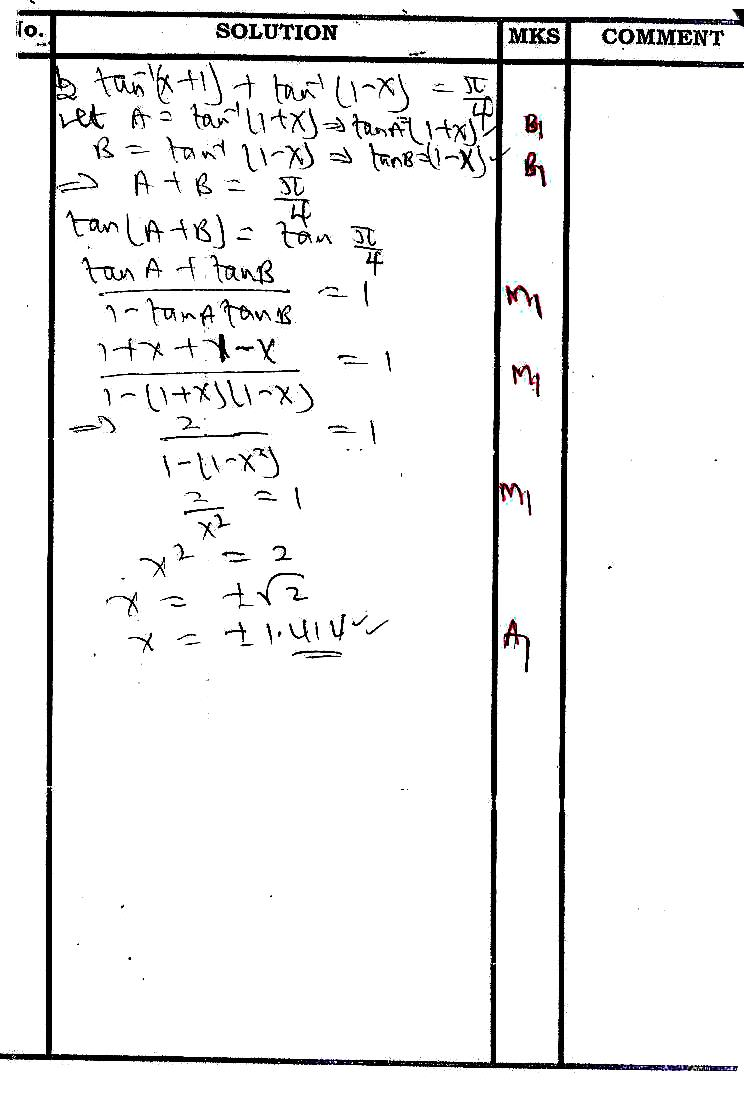 No. SOLUTION MKS COMMENT
b tan⁻¹(x+1) + tan⁻¹(1-x) = π/4
let A = tan⁻¹(1+x) ⇒ tanA = (1+x) ✓ B1
B = tan⁻¹(1-x) ⇒ tanB = (1-x) ✓ B1
⇒ A + B = π/4
tan(A+B) = tan π/4
(tan A + tanB)/(1 - tanA tanB) = 1 M1
(1+x+1-x)/(1-(1+x)(1-x)) = 1 M1
⇒ 2/(1-(1-x²)) = 1
2/x² = 1 M1
x² = 2
x = ±√2
x = ±1.414 ✓✓ A1